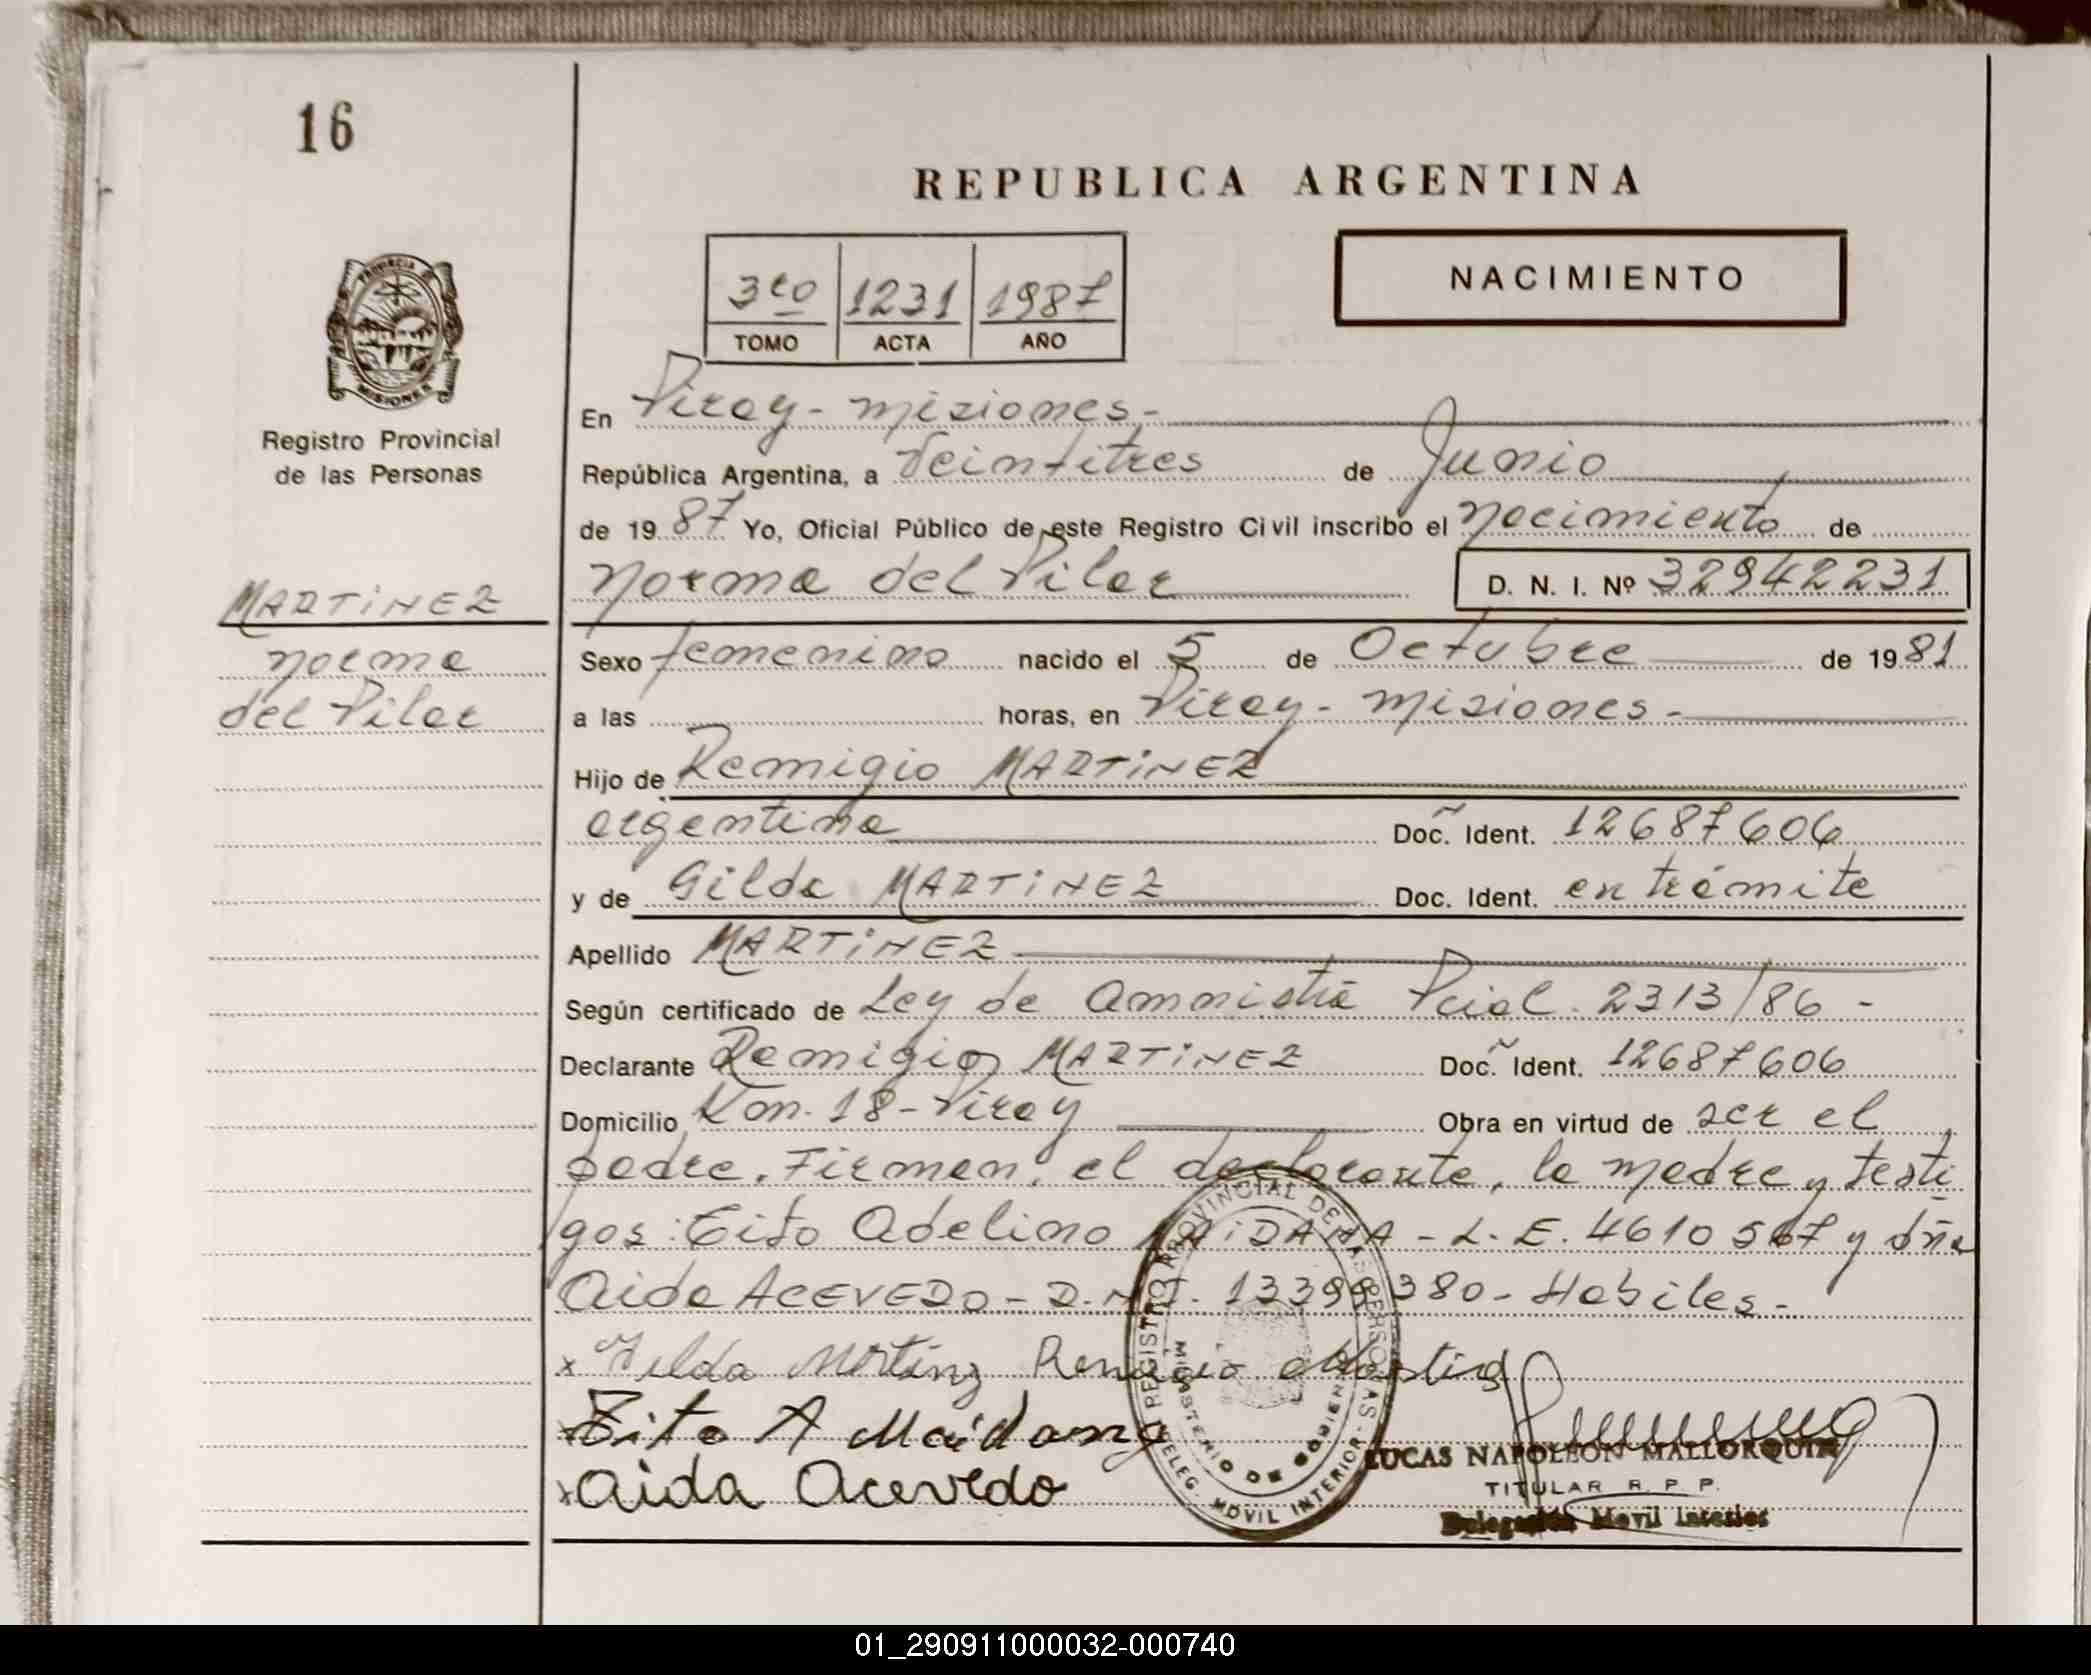 16
REPUBLICA ARGENTINA
3ro 1231 1987
TOMO ACTA AÑO
NACIMIENTO
PROVINCIA
MISIONES
Registro Provincial
de las Personas
MARTINEZ
Norma
del Pilar
En Piray - Misiones -
República Argentina, a Veintitres de Junio
de 1987 Yo, Oficial Público de este Registro Civil inscribo el nacimiento de
Norma del Pilar D. N. I. Nº 32942231
Sexo femenino nacido el 5 de Octubre de 1981
a las horas, en Piray - Misiones -
Hijo de Remigio MARTINEZ
argentina Doc. Ident. 12687606
y de Gilda MARTINEZ Doc. Ident. en trámite
Apellido MARTINEZ
Según certificado de Ley de Amnistia Pcial. 2313/86 -
Declarante Remigio MARTINEZ Doc. Ident. 12687606
Domicilio Km. 18 - Piray Obra en virtud de ser el
padre. Firman, el declarante, la madre y testi
gos: Tito Adelino MAIDANA - L. E. 4610567 y dña
Aida ACEVEDO - D.N.I. 13399380 - Habiles -
x Gilda Martinz Remigio Martinez
x Tito A Maidana
x Aida Acevedo
REGISTRO PROVINCIAL DE LAS PERSONAS
MINISTERIO DE GOBIERNO
DELEG. MOVIL INTERIOR
LUCAS NAPOLEON MALLORQUIN
TITULAR R. P. P.
Delegación Movil Interior
01_290911000032-000740